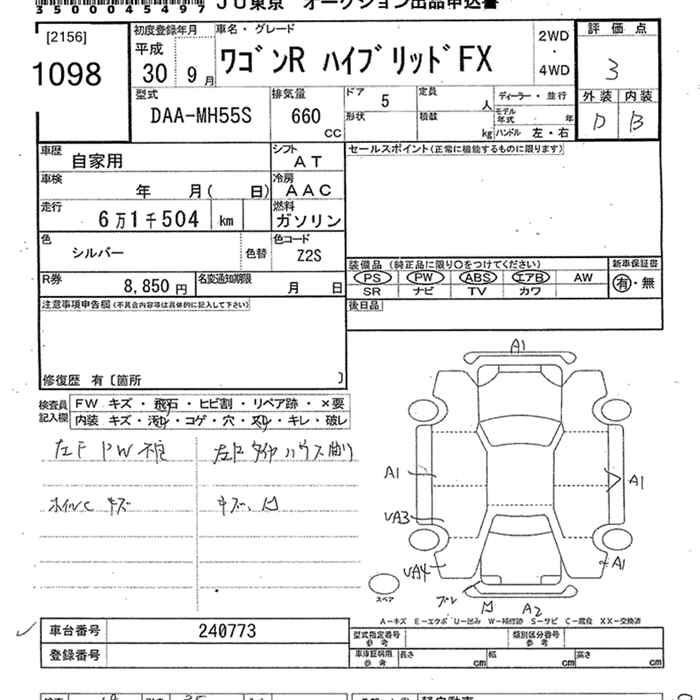 3500045497 JU東京 オークション出品申込書
[2156]
1098
初度登録年月
平成
30 9月
車名・グレード
ワゴンR ハイブリッドFX
2WD
・
4WD
評価点
3
外装 内装
D B
型式
DAA-MH55S
排気量
660
CC
ドア
5
形状
定員
人
積載
kg
ディーラー・並行
モデル年式 年
ハンドル 左・右
車歴
自家用
シフト
AT
車検
年 月( 日)
冷房
AAC
走行
6万1千504 km
燃料
ガソリン
色
シルバー
色替
色コード
Z2S
R券
8,850円
名変通知期限
月 日
セールスポイント(正常に機能するものに限ります)
装備品(純正品に限り○をつけてください)
新車保証書
PS PW ABS エアB AW
SR ナビ TV カワ
有・無
後日品
注意事項申告欄(不具合内容等は具体的に記入して下さい)
修復歴 有〔箇所 〕
検査員記入欄
FW キズ・飛石・ヒビ割・リペア跡・×要
内装 キズ・汚れ・コゲ・穴・スレ・キレ・破レ
左F PW不良
ホイルC キズ
キズ、凹
A1
A1
A1
UA3
UA4
A1
スペア
凹 A2
A-キズ E-エクボ U-凹み W-補修跡 S-サビ C-腐食 XX-交換済
車台番号
240773
登録番号
型式指定番号
参考
類別区分番号
参考
車庫証明用
参考
長さ cm
幅 cm
高さ cm